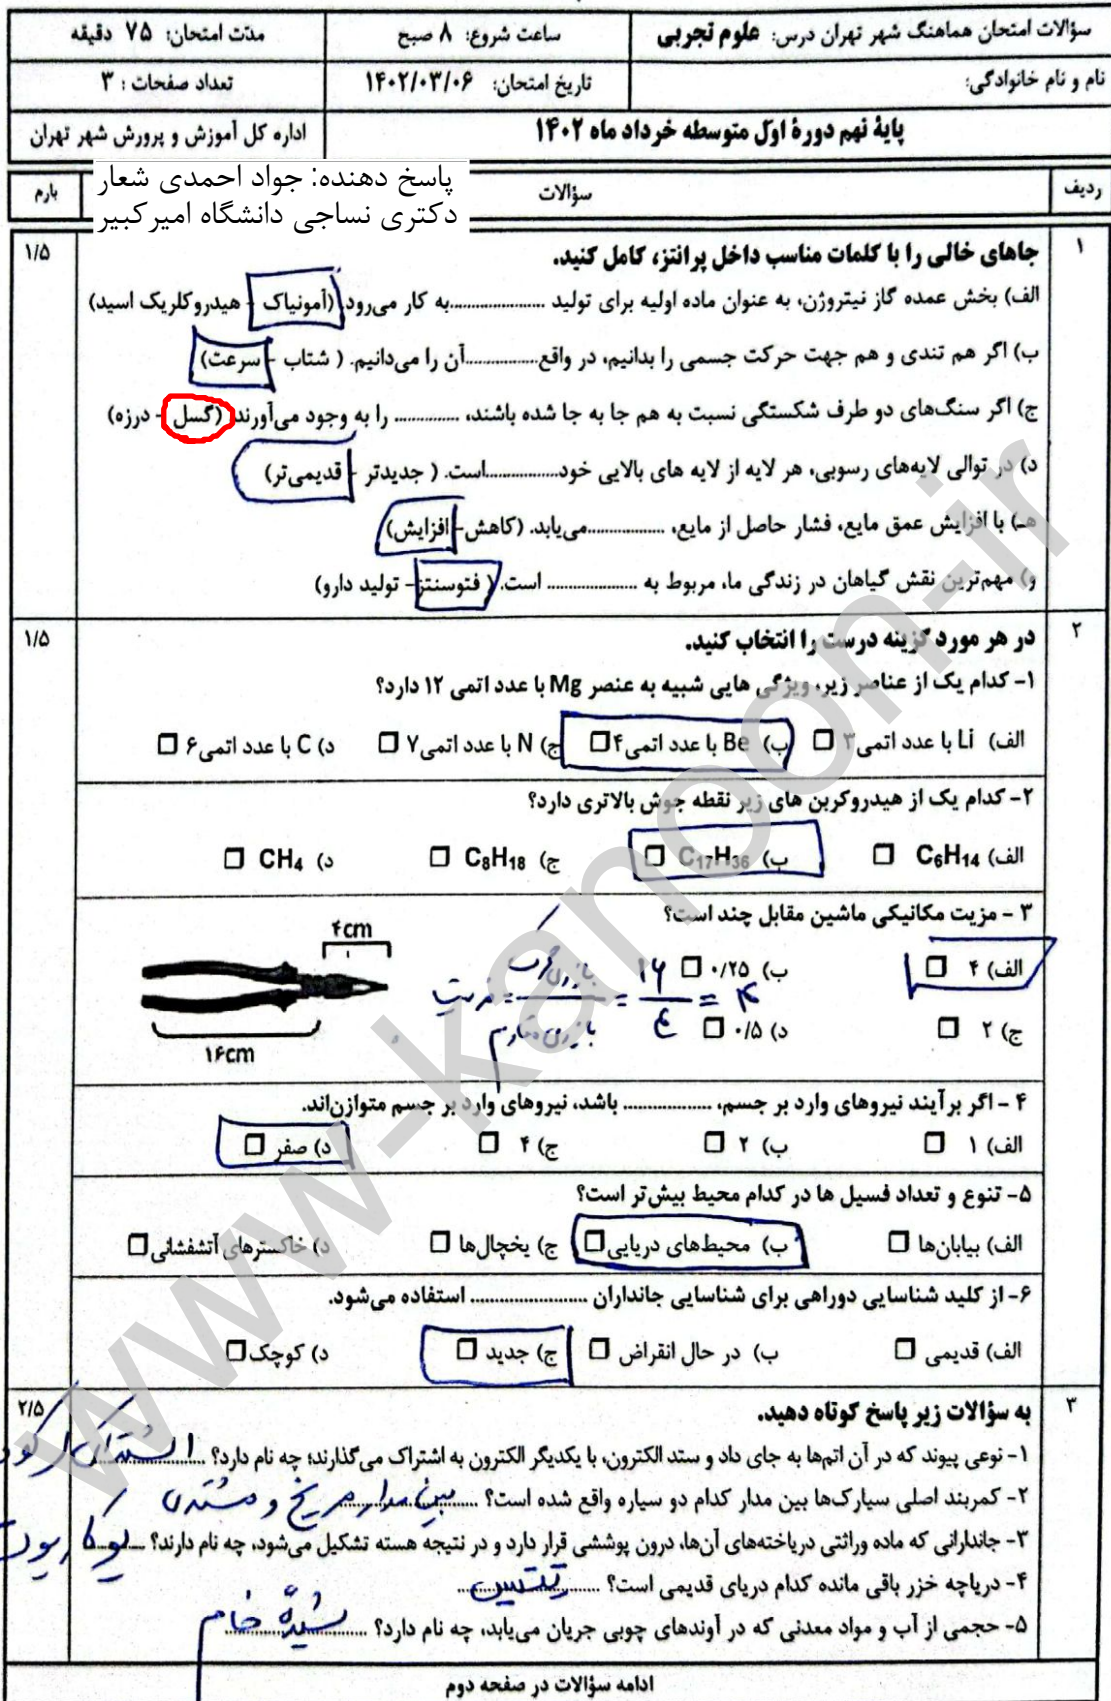 سؤالات امتحان هماهنگ شهر تهران درس: علوم تجربی
ساعت شروع: ۸ صبح
مدّت امتحان: ۷۵ دقیقه
نام و نام خانوادگی:
تاریخ امتحان: ۱۴۰۲/۰۳/۰۶
تعداد صفحات : ۳
پایهٔ نهم دورهٔ اوّل متوسطه خرداد ماه ۱۴۰۲
اداره کل آموزش و پرورش شهر تهران
پاسخ دهنده: جواد احمدی شعار
دکتری نساجی دانشگاه امیرکبیر
ردیف
سؤالات
بارم
۱
جاهای خالی را با کلمات مناسب داخل پرانتز، کامل کنید.
۱/۵
الف) بخش عمده گاز نیتروژن، به عنوان ماده اولیه برای تولید ....................به کار می‌رود. (آمونیاک - هیدروکلریک اسید)
ب) اگر هم تندی و هم جهت حرکت جسمی را بدانیم، در واقع...............آن را می‌دانیم. ( شتاب - سرعت)
ج) اگر سنگ‌های دو طرف شکستگی نسبت به هم جا به جا شده باشند، .............. را به وجود می‌آورند. (گسل - درزه)
د) در توالی لایه‌های رسوبی، هر لایه از لایه های بالایی خود................است. ( جدیدتر - قدیمی‌تر)
هـ) با افزایش عمق مایع، فشار حاصل از مایع، ................می‌یابد. (کاهش- افزایش)
و) مهم‌ترین نقش گیاهان در زندگی ما، مربوط به ................... است. ( فتوسنتز- تولید دارو)
۲
در هر مورد گزینه درست را انتخاب کنید.
۱/۵
۱- کدام یک از عناصر زیر، ویژگی هایی شبیه به عنصر Mg با عدد اتمی ۱۲ دارد؟
الف) Li با عدد اتمی ۳ □ ب) Be با عدد اتمی۴ □ ج) N با عدد اتمی۷ □ د) C با عدد اتمی۶ □
۲- کدام یک از هیدروکربن های زیر نقطه جوش بالاتری دارد؟
الف) C₆H₁₄ □ ب) C₁₇H₃₆ □ ج) C₈H₁₈ □ د) CH₄ □
۳ - مزیت مکانیکی ماشین مقابل چند است؟
۴cm
الف) ۴ □ ب) ۰/۲۵ □
مزیت = بازوی محرک / بازوی مقاوم = ۱۶ / ۴ = ۴
ج) ۲ □ د) ۰/۵ □
۱۶cm
۴ - اگر برآیند نیروهای وارد بر جسم، .................. باشد، نیروهای وارد بر جسم متوازن‌اند.
الف) ۱ □ ب) ۲ □ ج) ۴ □ د) صفر □
۵- تنوع و تعداد فسیل ها در کدام محیط بیش‌تر است؟
الف) بیابان‌ها □ ب) محیط‌های دریایی □ ج) یخچال‌ها □ د) خاکسترهای آتشفشانی □
۶- از کلید شناسایی دوراهی برای شناسایی جانداران ........................ استفاده می‌شود.
الف) قدیمی □ ب) در حال انقراض □ ج) جدید □ د) کوچک □
۳
به سؤالات زیر پاسخ کوتاه دهید.
۲/۵
۱- نوعی پیوند که در آن اتم‌ها به جای داد و ستد الکترون، با یکدیگر الکترون به اشتراک می‌گذارند؛ چه نام دارد؟ اشتراکی
۲- کمربند اصلی سیارک‌ها بین مدار کدام دو سیاره واقع شده است؟ بین مدار مریخ و مشتری
۳- جاندارانی که ماده وراثتی دریاخته‌های آن‌ها، درون پوششی قرار دارد و در نتیجه هسته تشکیل می‌شود، چه نام دارند؟ یوکاریوت
۴- دریاچه خزر باقی مانده کدام دریای قدیمی است؟ تتیس
۵- حجمی از آب و مواد معدنی که در آوندهای چوبی جریان می‌یابد، چه نام دارد؟ شیرهٔ خام
ادامه سؤالات در صفحه دوم
www-kanoon-ir